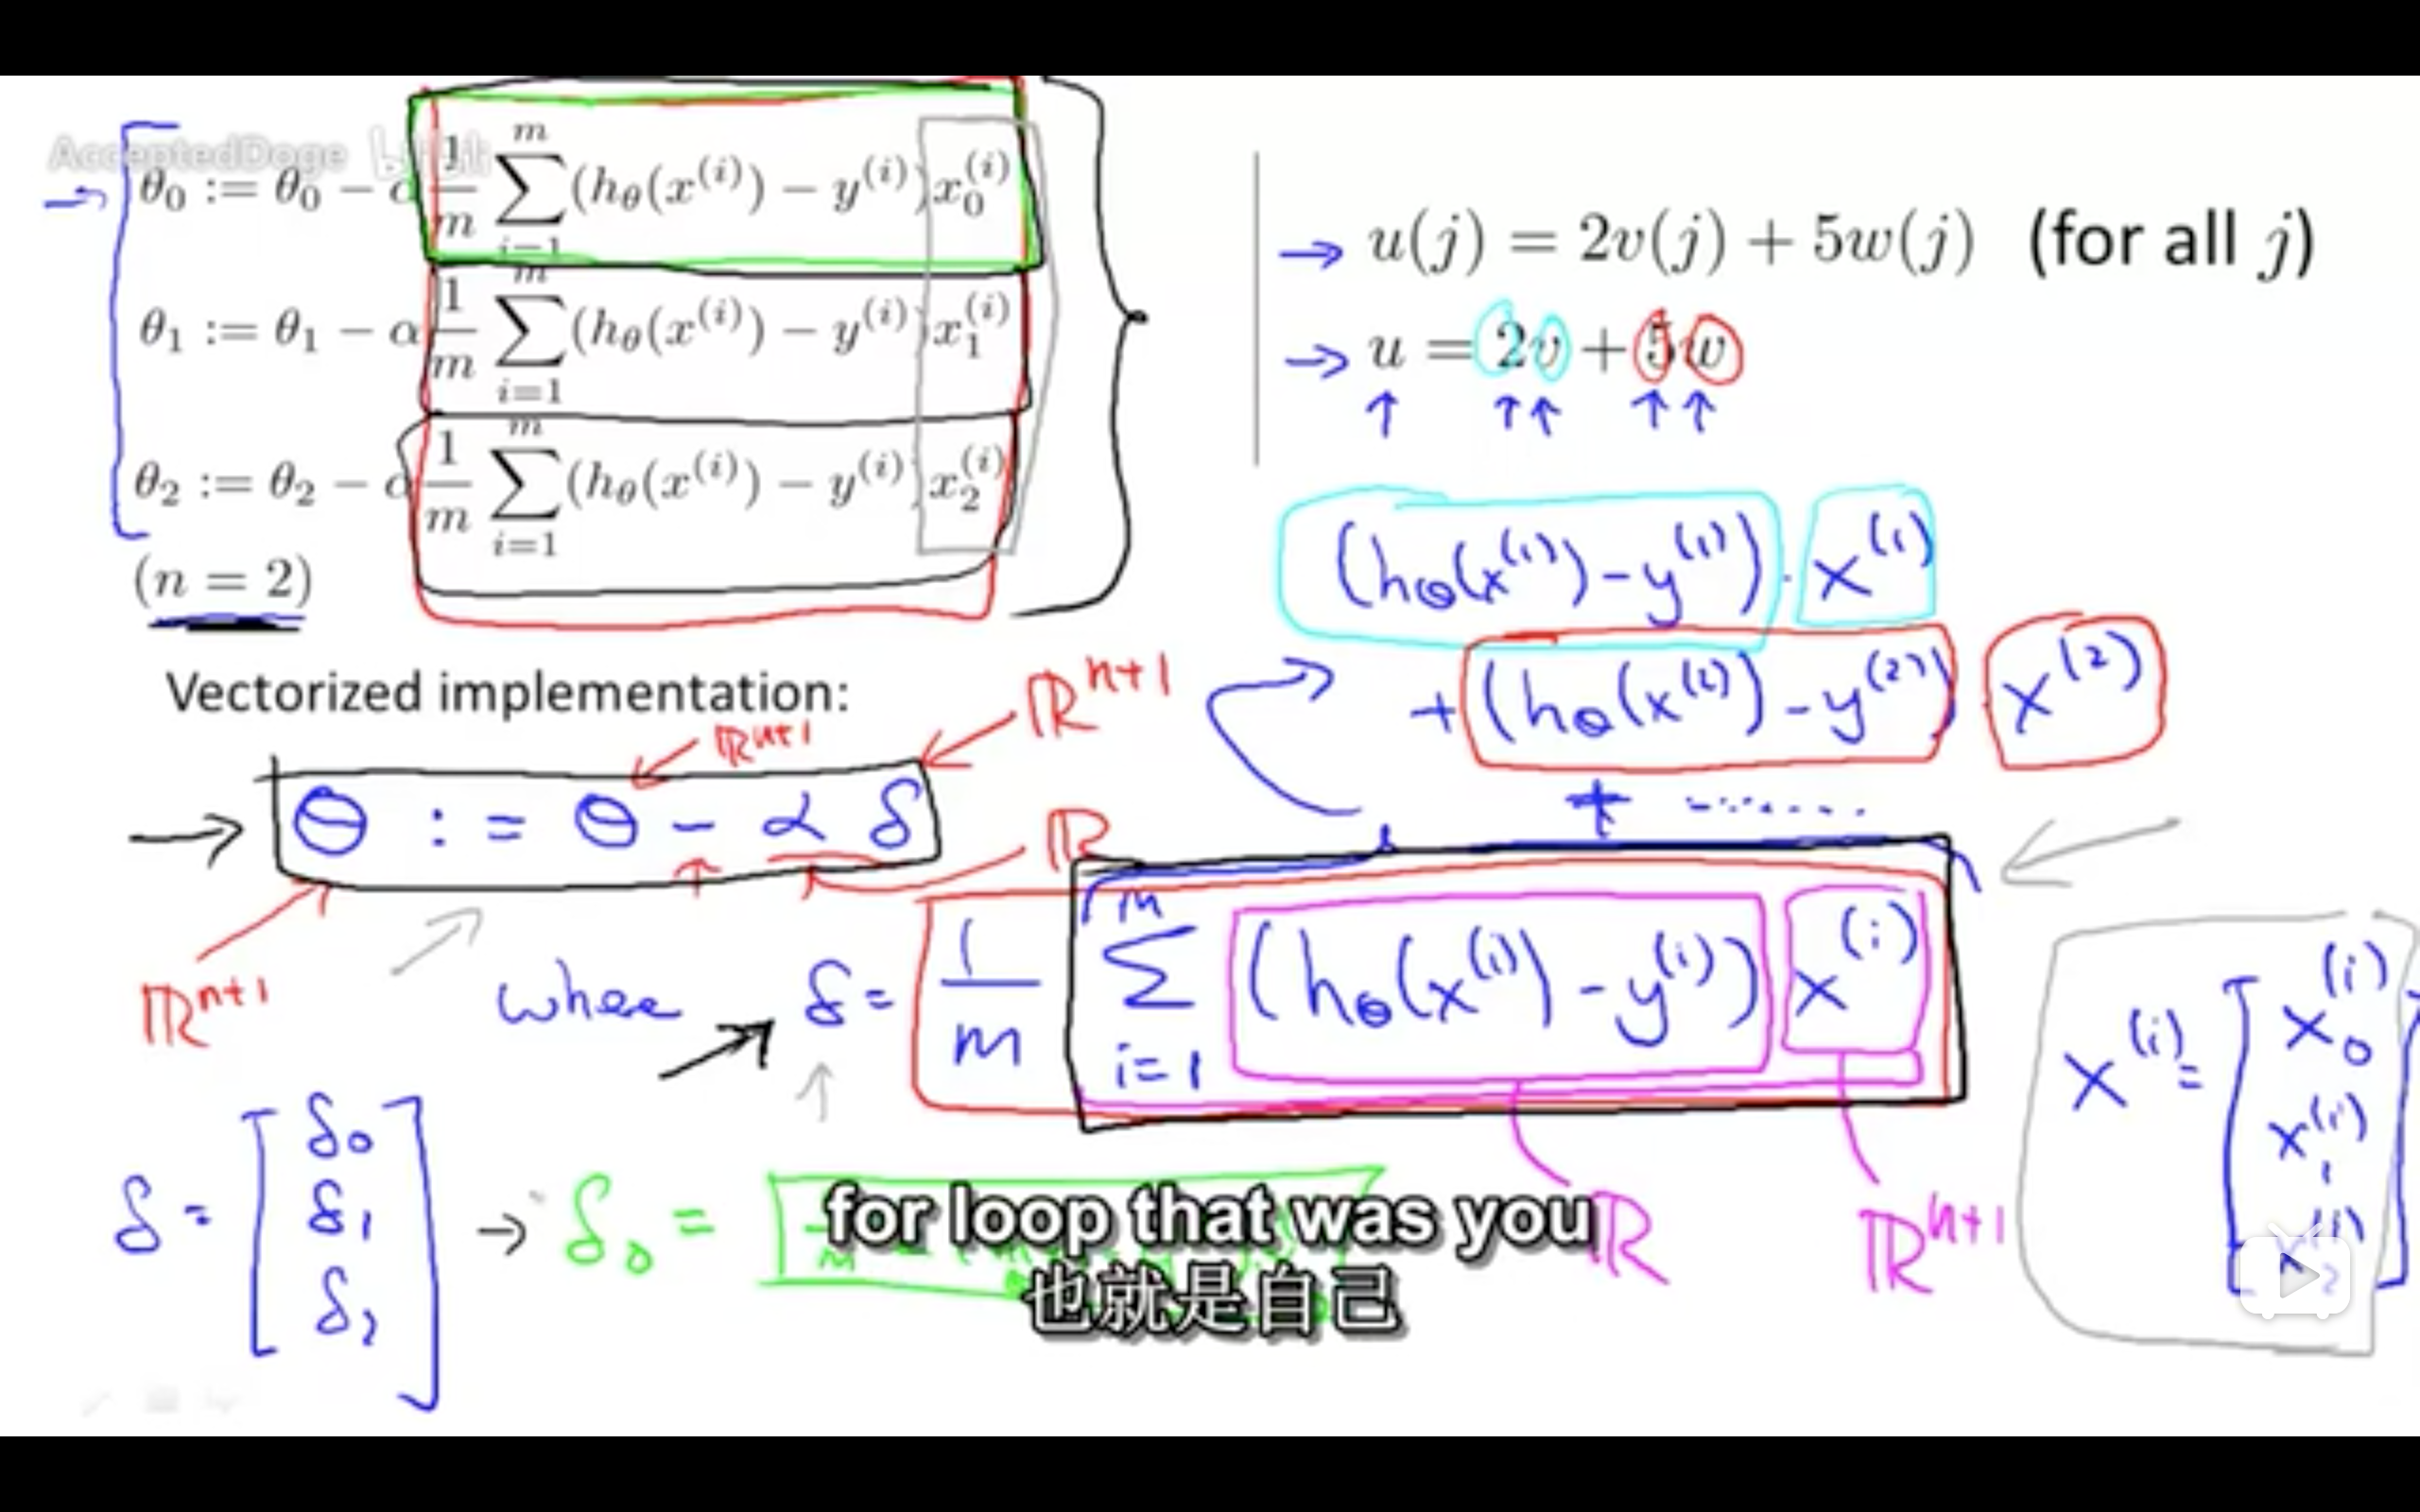 AcceptedDoge bilibili
θ₀ := θ₀ − α 1/m ∑ᵢ₌₁ᵐ (h_θ(x⁽ⁱ⁾) − y⁽ⁱ⁾) x₀⁽ⁱ⁾
θ₁ := θ₁ − α 1/m ∑ᵢ₌₁ᵐ (h_θ(x⁽ⁱ⁾) − y⁽ⁱ⁾) x₁⁽ⁱ⁾
θ₂ := θ₂ − α 1/m ∑ᵢ₌₁ᵐ (h_θ(x⁽ⁱ⁾) − y⁽ⁱ⁾) x₂⁽ⁱ⁾
(n = 2)
→ u(j) = 2v(j) + 5w(j) (for all j)
→ u = 2v + 5w
↑ ↑ ↑ ↑ ↑
(h_θ(x⁽¹⁾) − y⁽¹⁾) · x⁽¹⁾
+ (h_θ(x⁽²⁾) − y⁽²⁾) x⁽²⁾
+ .......
Vectorized implementation:
ℝⁿ⁺¹
ℝⁿ⁺¹
→ θ := θ − α δ
ℝ
ℝⁿ⁺¹
where → δ = 1/m ∑ᵢ₌₁ᵐ (h_θ(x⁽ⁱ⁾) − y⁽ⁱ⁾) x⁽ⁱ⁾
ℝ ℝⁿ⁺¹
x⁽ⁱ⁾ = [x₀⁽ⁱ⁾
x₁⁽ⁱ⁾
x₂⁽ⁱ⁾]
δ = [δ₀
δ₁
δ₂] → δ₀ =
for loop that was you
也就是自己